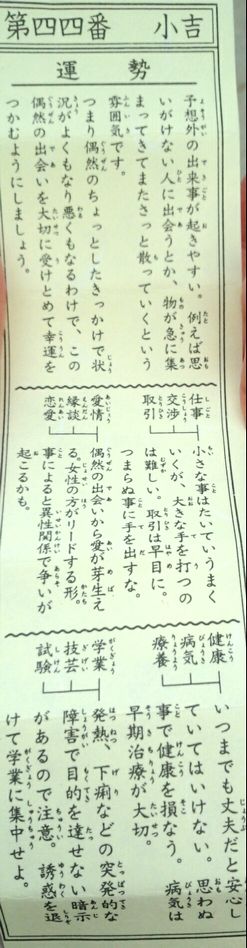 第四四番 小吉
運勢
予想外の出来事が起きやすい。例えば思
いがけない人に出会うとか、物が急に集
まってきてまたさっと散っていくという
雰囲気です。
つまり偶然のちょっとしたきっかけで状
況がよくもなり悪くもなるわけで、この
偶然の出会いを大切に受けとめて幸運を
つかむようにしましょう。
仕事
交渉
取引
小さな事はたいていうまく
いくが、大きな手を打つの
は難しい。取引は早目に。
つまらぬ事に手を出すな。
愛情
縁談
恋愛
偶然の出会いから愛が芽生え
る。女性の方がリードする形。
事によると異性関係で争いが
起こるかも。
健康
病気
療養
いつまでも丈夫だと安心し
ていてはいけない。思わぬ
事で健康を損なう。病気は
早期治療が大切。
学業
技芸
試験
発熱、下痢などの突発的な
障害で目的を達せない暗示
があるので注意。誘惑を退
けて学業に集中せよ。